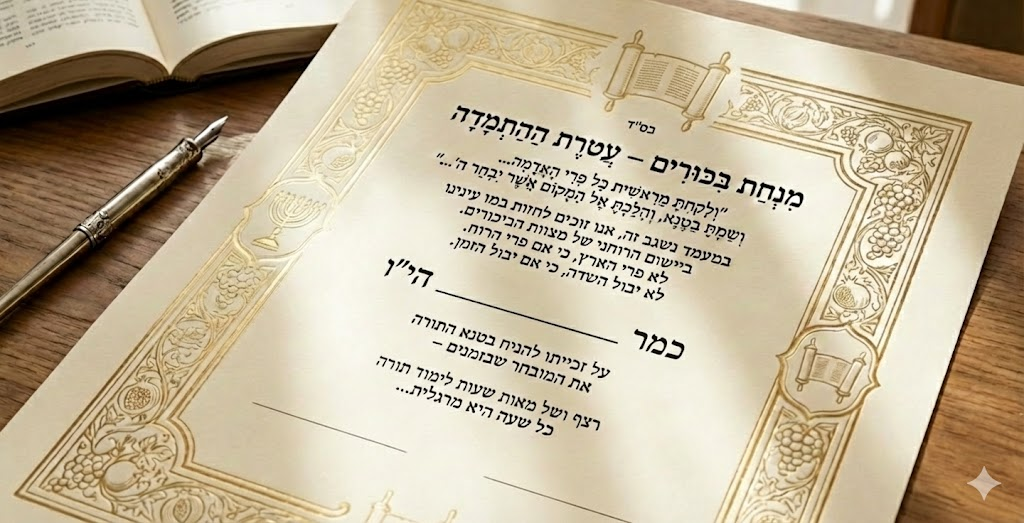 בס"ד
מִנְחַת בִּכּוּרִים – עֲטֶרֶת הַהַתְמָדָה
"וְלָקַחְתָּ מֵרֵאשִׁית כָּל פְּרִי הָאֲדָמָה...
וְשַׂמְתָּ בַטֶּנֶא, וְהָלַכְתָּ אֶל הַמָּקוֹם אֲשֶׁר יִבְחַר ה'..."
במעמד נשגב זה, אנו זוכים לחוות במו עינינו
ביישום הרוחני של מצוות הביכורים.
לא פרי הארץ, כי אם פרי הרוח.
לא יבול השדה, כי אם יבול הזמן.
כמר ________________ הי"ו
על זכייתו להניח בטנא התורה
את המובחר שבזמנים –
רצף ושל מאות שעות לימוד תורה
כל שעה היא מרגלית...